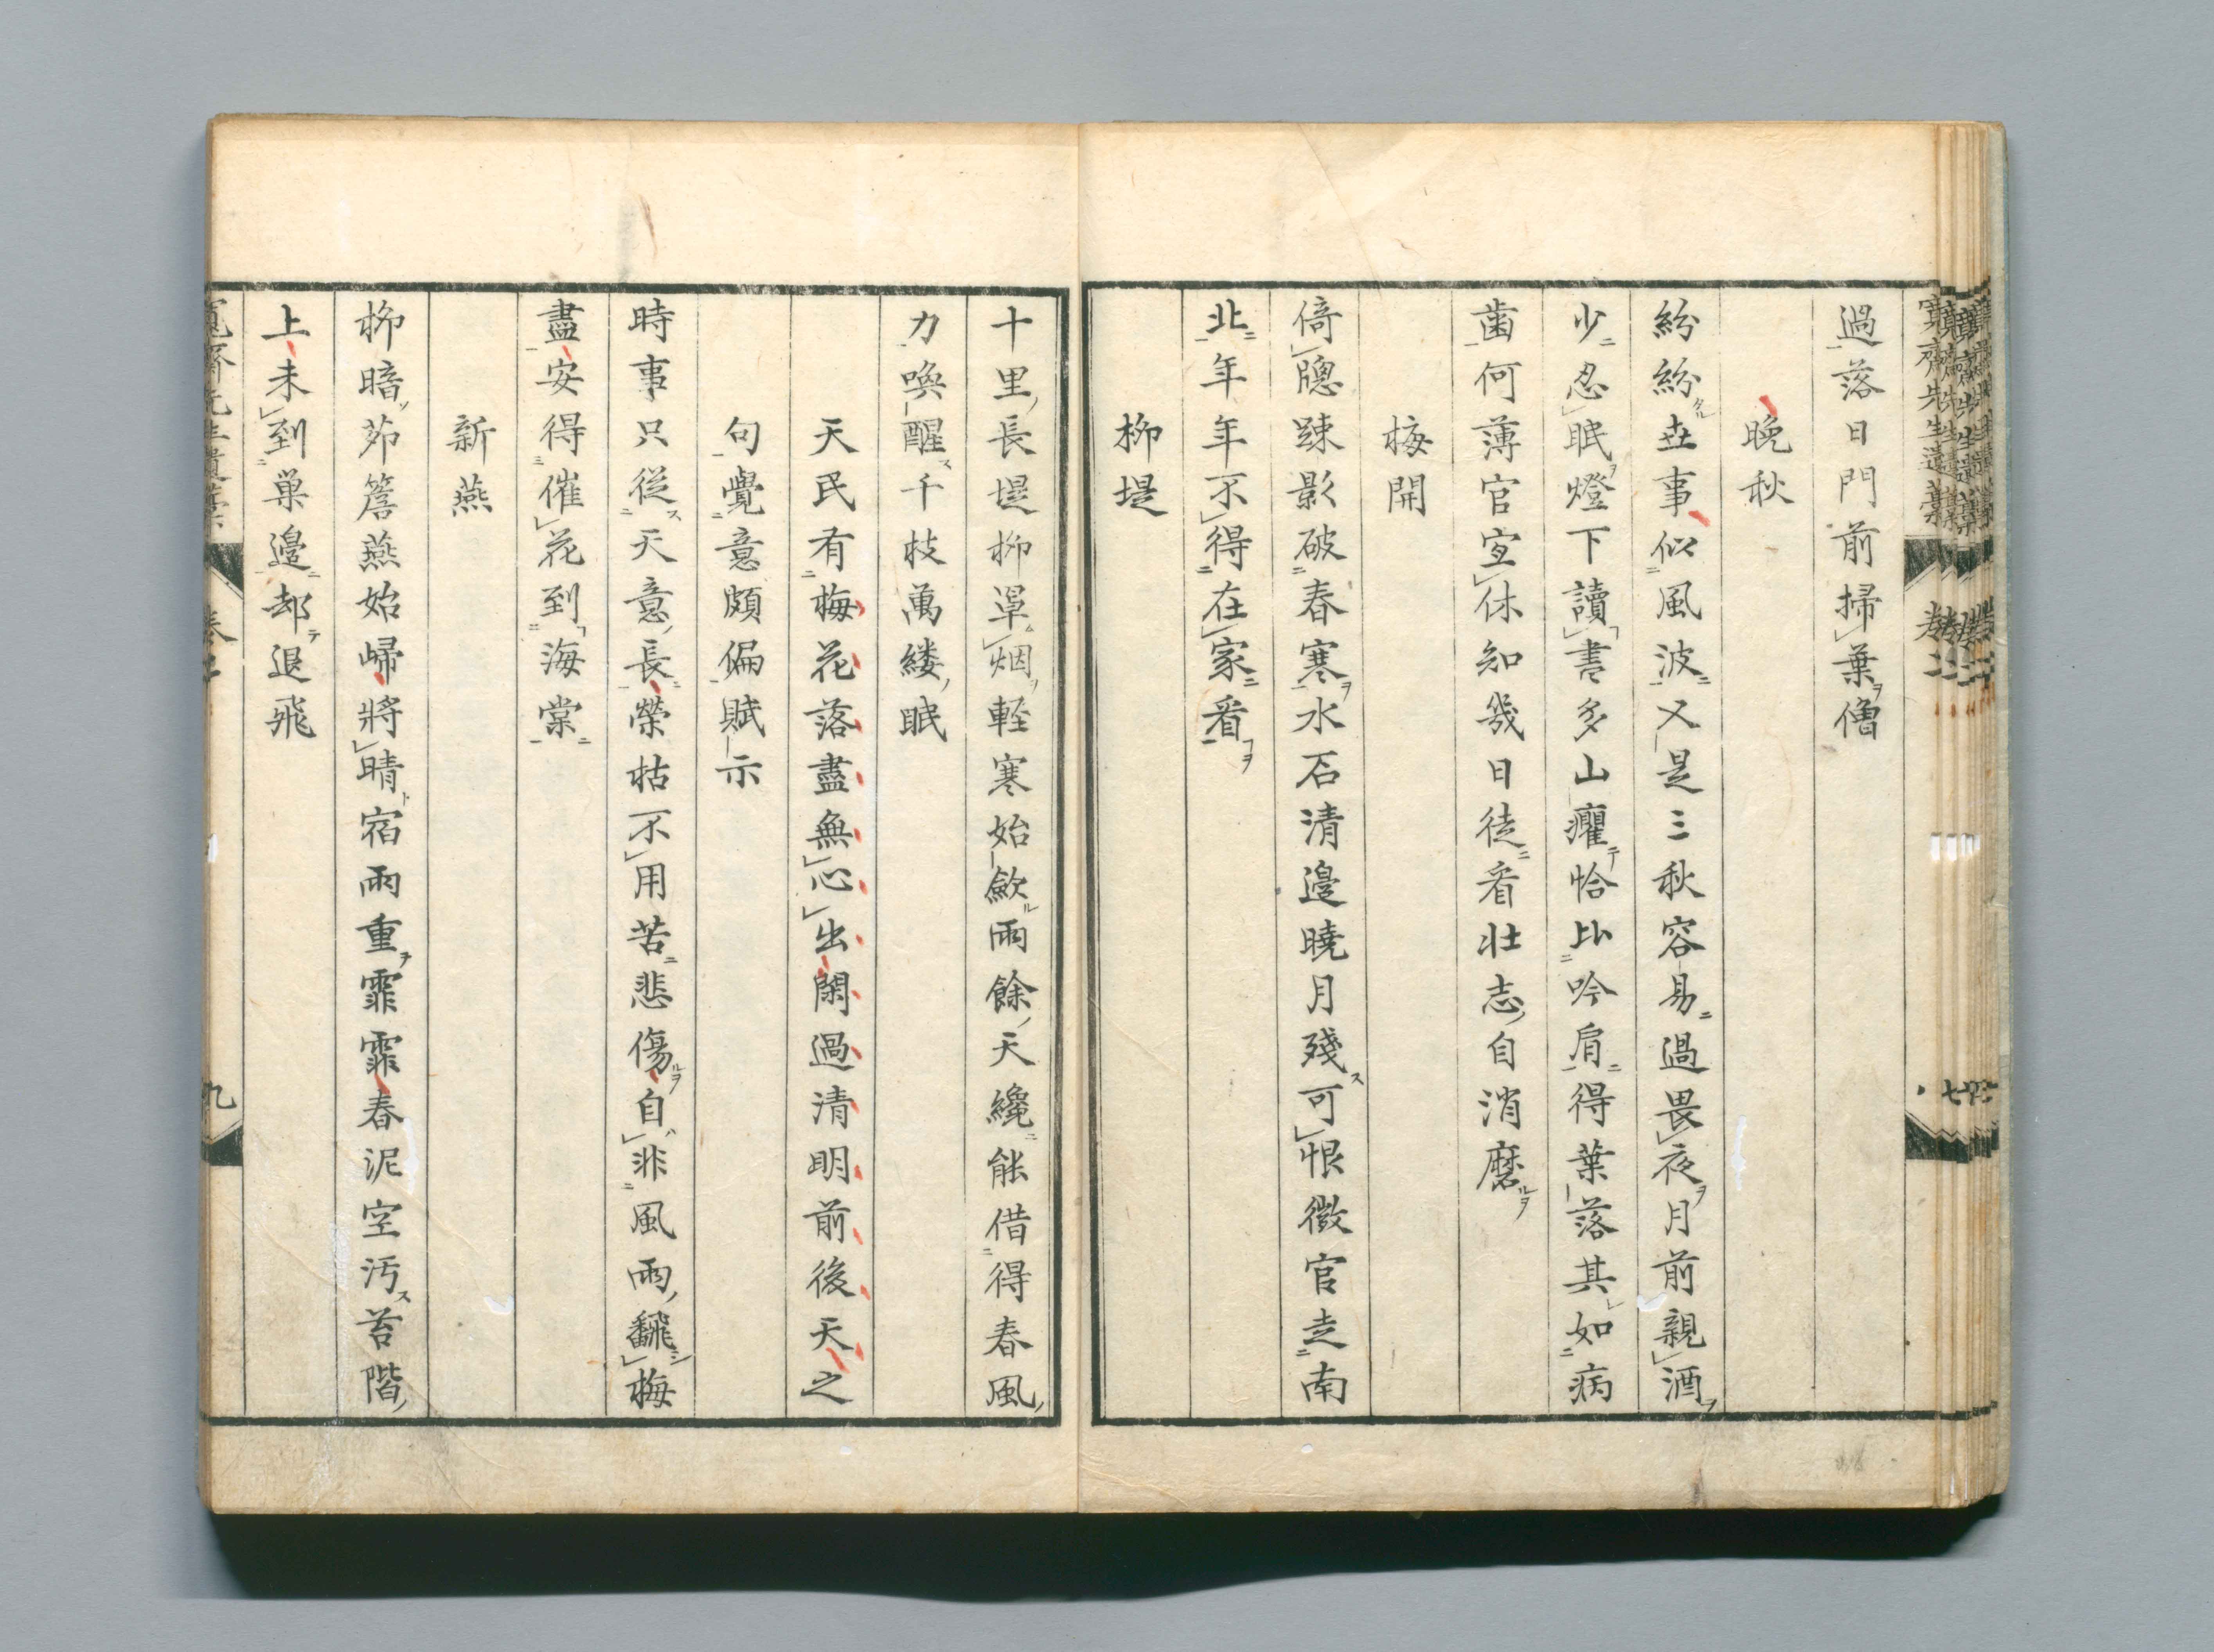 過落日門前掃葉僧
晩秋
紛紛世事似風波又是三秋容易過畏夜月前親酒
少忍眠燈下讀書多山癯恰比吟肩得葉落其如病
歯何薄官宜休知幾日徒看壮志自消磨
梅開
倚牕踈影破春寒水石清邉暁月殘可恨微官走南
北年年不得在家看
柳堤
十里長堤柳罩烟軽寒始歛雨餘天纔能借得春風
力喚醒千枝萬縷眠
天民有梅花落盡無心出閑過清明前後天之
句覺意頗偏賦示
時事只從天意長榮枯不用苦悲傷自非風雨飜梅
盡安得催花到海棠
新燕
柳暗茆簷燕始歸將晴宿雨重霏霏春泥空汚苔階
上未到巣邉却退飛
寛齋先生遺藁 卷二 九